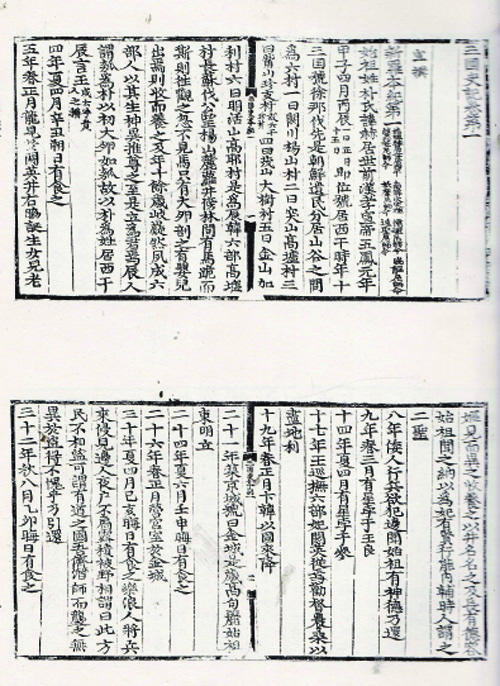 三國史記卷第一
宣撰
新羅本紀第一
始祖姓朴氏諱赫居世前漢孝宣帝五鳳元年
甲子四月丙辰一曰正月十五日即位號居西干時年十
三國號徐那伐先是朝鮮遺民分居山谷之間
爲六村一曰閼川楊山村二曰突山高墟村三
曰觜山珍支村或云干珍村四曰茂山大樹村五曰金山加
利村六曰明活山高耶村是爲辰韓六部高墟
村長蘇伐公望楊山麓蘿井傍林間有馬跪而
嘶則徃觀之忽不見馬只有大卵剖之有嬰兒
出焉則收而養之及年十餘歲岐嶷然夙成六
部人以其生神異推尊之至是立爲君焉辰人
謂瓠爲朴以初大卵如瓠故以朴爲姓居西干
辰言王或云呼貴人之稱
四年夏四月辛丑朔日有食之
五年春正月龍見於閼英井右脇誕生女兒老
嫗見而異之收養之以井名名之及長有德容
始祖聞之納以爲妃有賢行能內輔時人謂之
二聖
八年倭人行兵欲犯邊聞始祖有神德乃還
九年春三月有星孛于王良
十四年夏四月有星孛于參
十七年王巡撫六部妃閼英從焉勸督農桑以
盡地利
十九年春正月卞韓以國來降
二十一年築京城號曰金城是歲高句麗始祖
東明立
二十四年夏六月壬申晦日有食之
二十六年春正月營宮室於金城
三十年夏四月己亥晦日有食之樂浪人將兵
來侵見邊人夜戶不扃露積被野相謂曰此方
民不相盜可謂有道之國吾儕潛師而襲之無
異於盜得不愧乎乃引還
三十二年秋八月乙卯晦日有食之